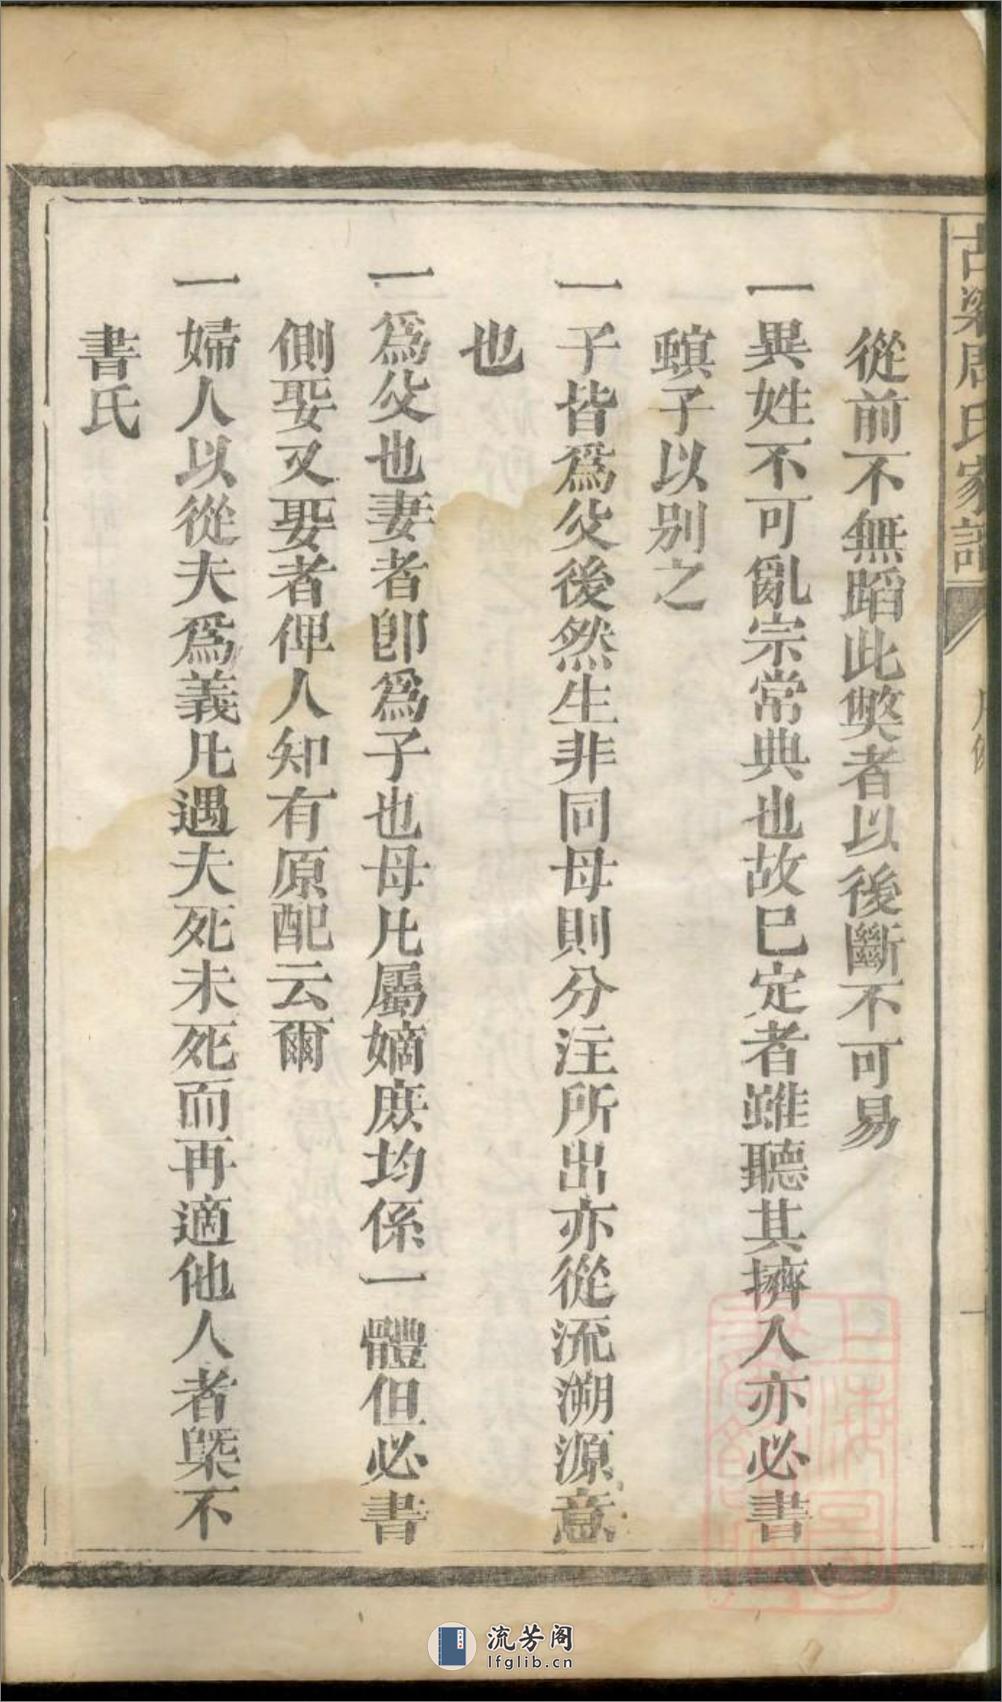 古梁周氏家譜
從前不無蹈此獘者以後斷不可易
一異姓不可亂宗常典也故已定者雖聽其擠入亦必書
螟子以别之
一子皆爲父後然生非同母則分注所出亦從流溯源意
也
一爲父也妻者卽爲子也母凡屬嫡庻均係一體但必書
側娶又娶者俾人知有原配云爾
一婦人以從夫爲義凡遇夫死未死而再適他人者槩不
書氏
流芳阁
lfglib.cn